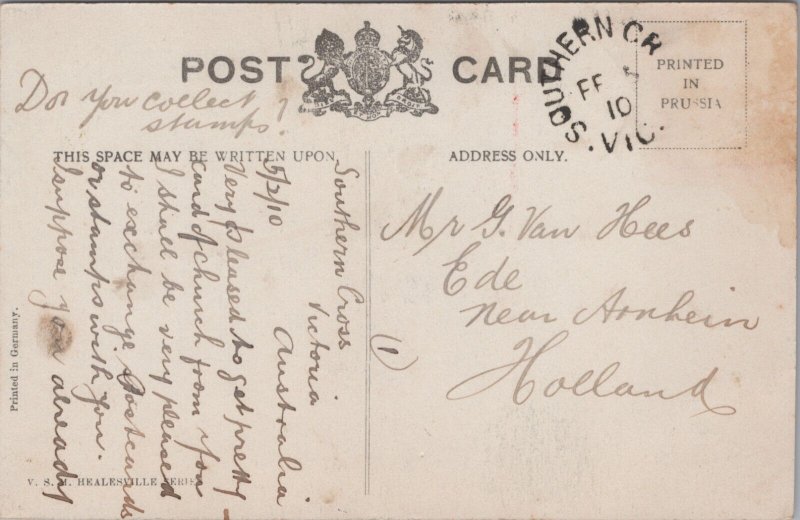 POST CARD
SOUTHERN CR
FE
10
VIC.
PRINTED
IN
PRUSSIA
Do you collect
stamps?
THIS SPACE MAY BE WRITTEN UPON.
ADDRESS ONLY.
Southern Cross
Victoria
Australia
5/2/10
Very pleased to get pretty
card of church from you
I shall be very pleased
to exchange Postcards
or stamps with you.
I suppose you already
(1)
Mr G. Van Hees
Ede
near Arnheim
Holland
Printed in Germany.
V. S. M. HEALESVILLE SERIES